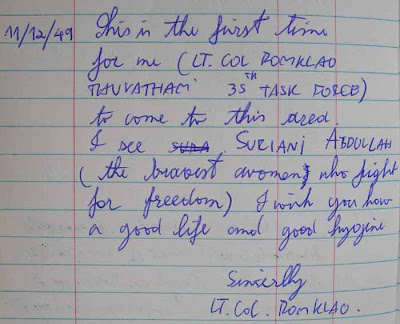 11/12/49 This is the first time
for me (LT. COL ROMKLAO
THUVATHAM 35TH TASK FORCE)
to come to this area.
I see SURA. SURIANI ABDULLAH
(the bravest women who fight
for freedom) I wish you how
a good life and good hygine
Sincerlly
LT. COL. ROMKLAO.